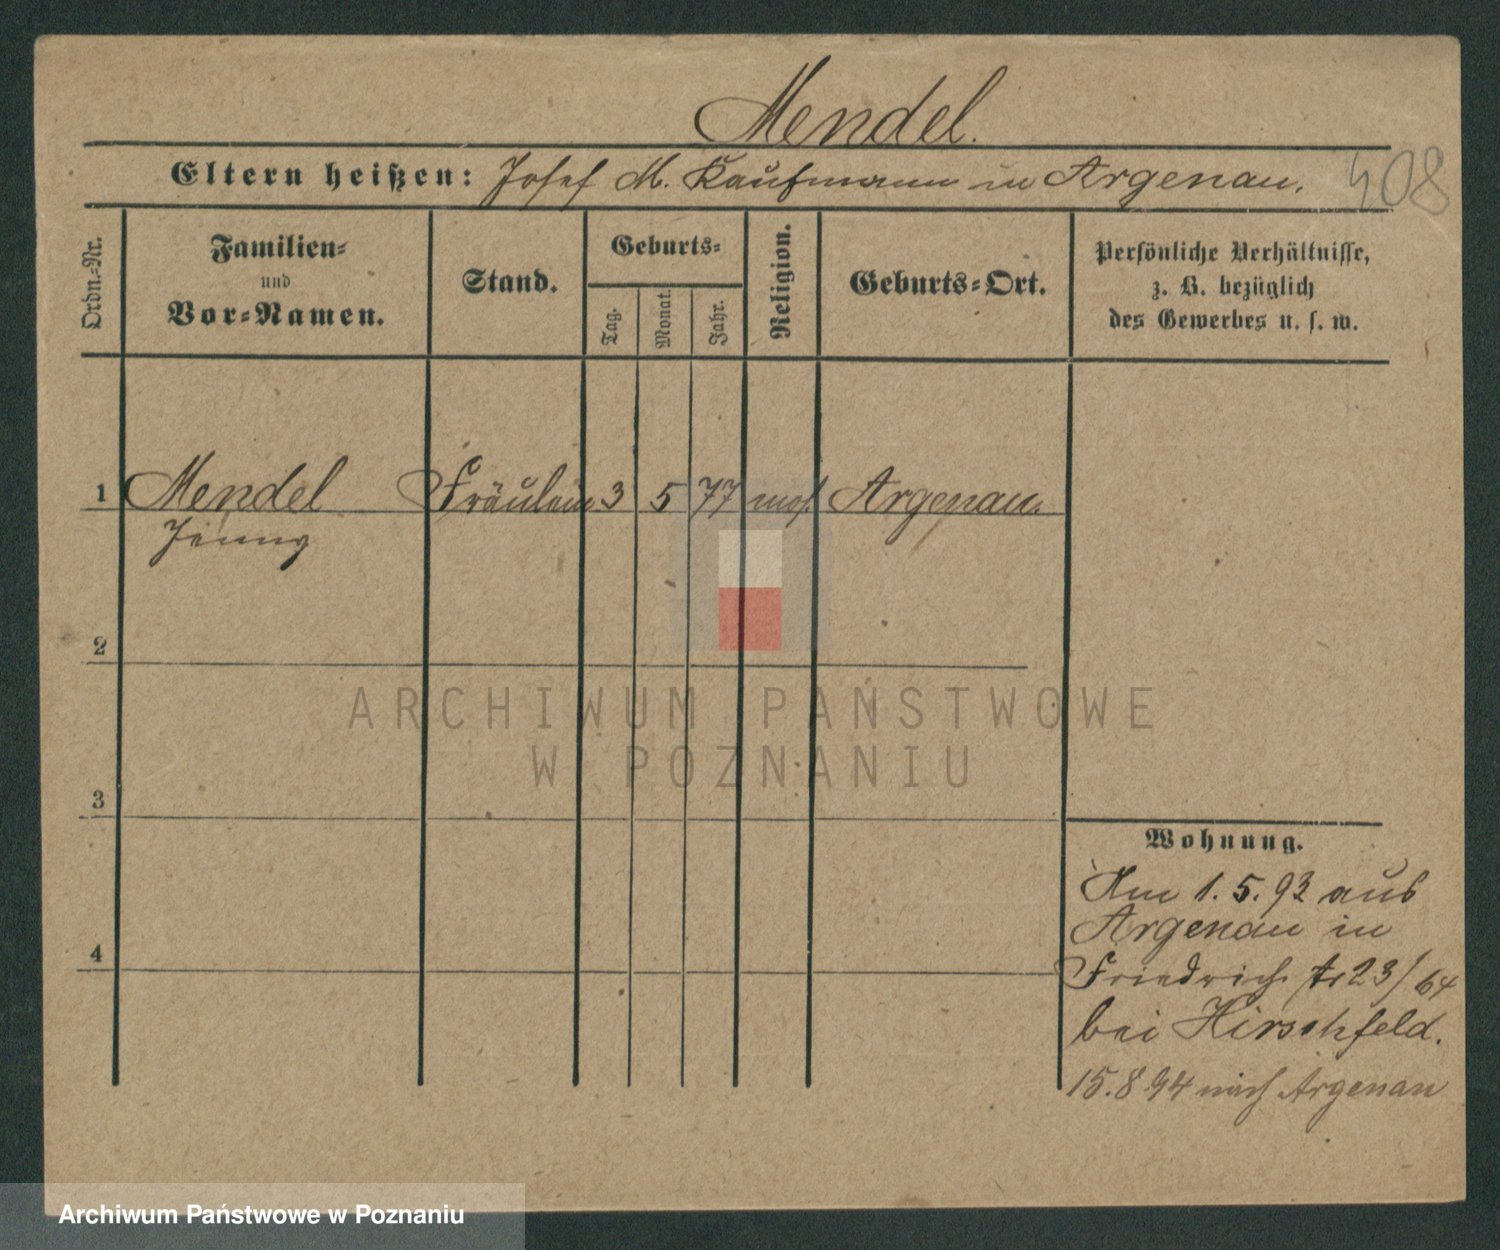 Mendel.
Eltern heißen: Josef M. Kaufmann in Argenau.
408
Ordn.-Nr.
Familien-
und
Vor-Namen.
Stand.
Geburts-
Tag.
Monat.
Jahr.
Religion.
Geburts-Ort.
Persönliche Verhältnisse,
z. B. bezüglich
des Gewerbes u. s. w.
1 Mendel Fräulein 3 5 77 mos. Argenau.
Jenny
2
ARCHIWUM PAŃSTWOWE
W POZNANIU
3
Wohnung.
Am 1.5.93 aus
Argenau in
4
Friedrich 23/64
bei Hirschfeld.
15.8 94 nach Argenau
Archiwum Państwowe w Poznaniu